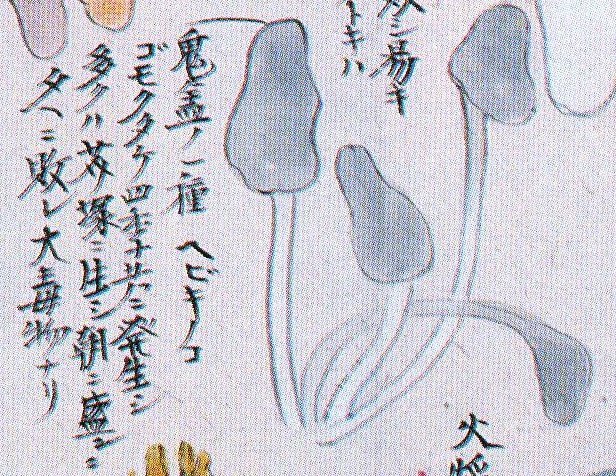 シ易キ
トキハ
鬼盖ノ一種 ヘビキノコ
ゴモクタケ 四季共ニ発生シ
多クハ芥塚ニ生シ朝ニ盛ンニ
夕ヘニ敗レ大毒物ナリ
火